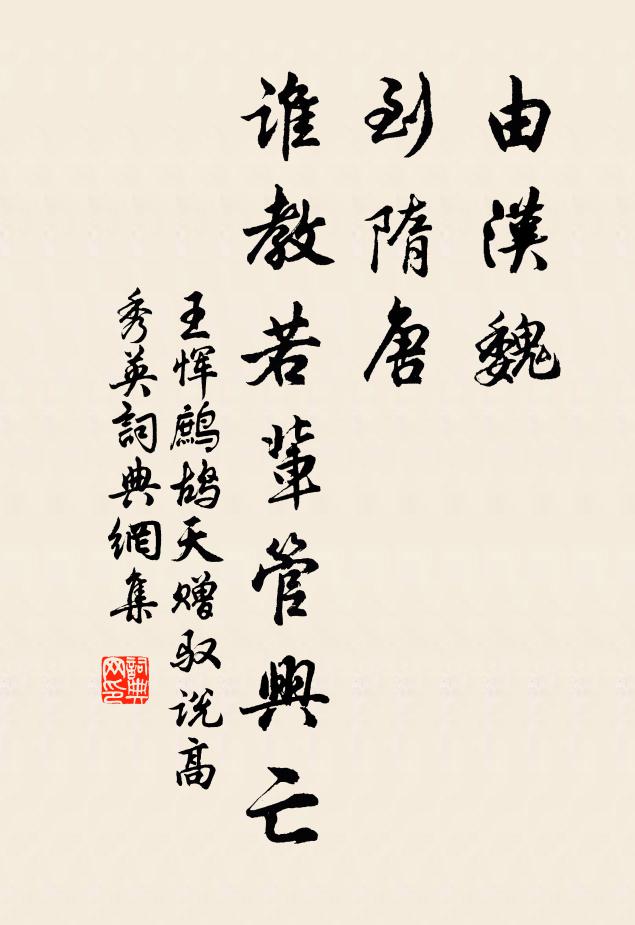 由漢魏
到隋唐
誰教若輩管興亡
王惲鷓鴣天赠驭说高
秀英詞典網集
詞典网印